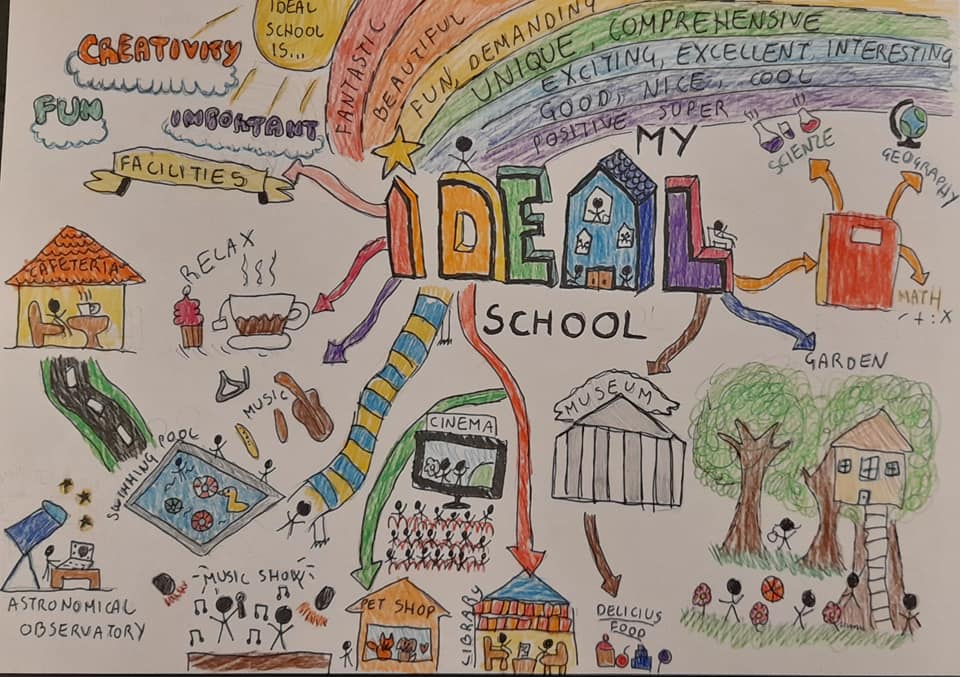 IDEAL
SCHOOL
IS...
CREATIVITY
FUN
IMPORTANT
FANTASTIC
BEAUTIFUL
FUN, DEMANDING
UNIQUE, COMPREHENSIVE
EXCITING, EXCELLENT, INTERESTING
GOOD, NICE, COOL
POSITIVE SUPER
MY
IDEAL
SCHOOL
FACILITIES
SCIENZE
GEOGRAPHY
MATH
- + : x
CAFETERIA
RELAX
MUSIC
GARDEN
MUSEUM
CINEMA
SWIMMING POOL
ASTRONOMICAL
OBSERVATORY
MUSIC SHOW
PET SHOP
LIBRARY
DELICIUS
FOOD